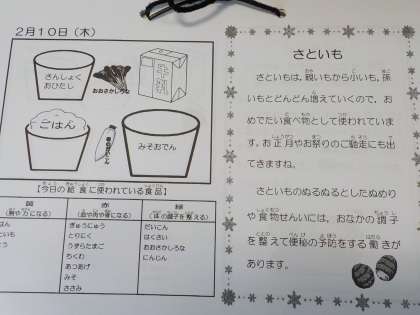 2月10日（木）
さんしょく
おひたし
おおさかしろな
ごはん
みそおでん
【今日の給食に使われている食品】
赤
緑
（血や肉や骨になる）
（体の調子を整える）
ぎゅうにゅう
とりにく
うずらたまご
ちくわ
あつあげ
みそ
ささみ
だいこん
はくさい
おおさかしろな
にんじん
さといも
さといもは，親いもから小いも，孫
いもとどんどん増えていくので，お
めでたい食べ物として使われていま
す。お正月やお祭りのご馳走にも出
てきますね。
さといものぬるぬるとしたぬめり
や食物せんいには、おなかの調子
を整えて便秘の予防をする働きが
あります。